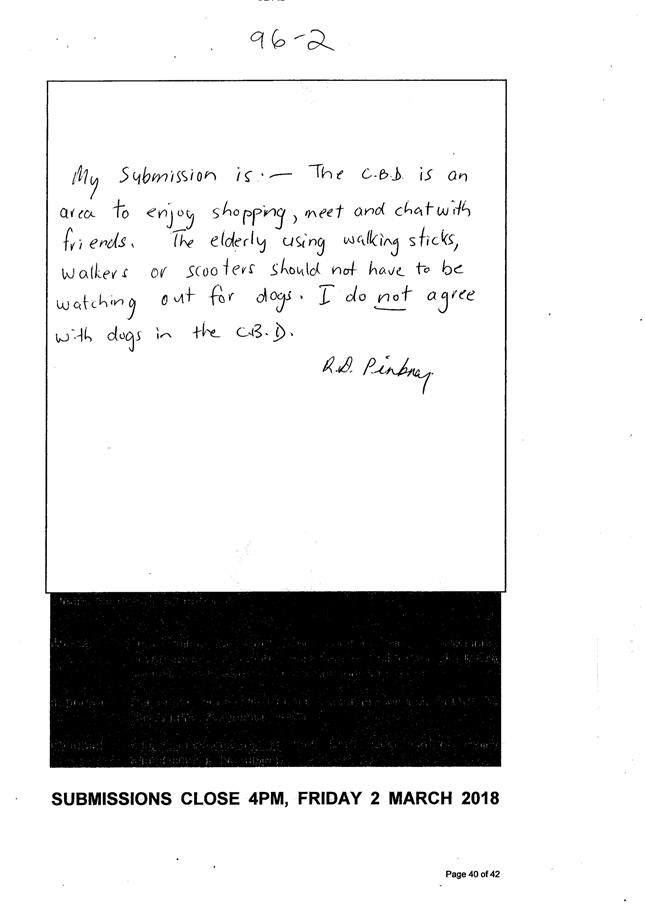 96-2
My Submission is:— The C.B.D. is an
area to enjoy shopping, meet and chat with
friends. The elderly using walking sticks,
walkers or scooters should not have to be
watching out for dogs. I do not agree
with dogs in the C.B.D.
R.D.
SUBMISSIONS CLOSE 4PM, FRIDAY 2 MARCH 2018
Page 40 of 42